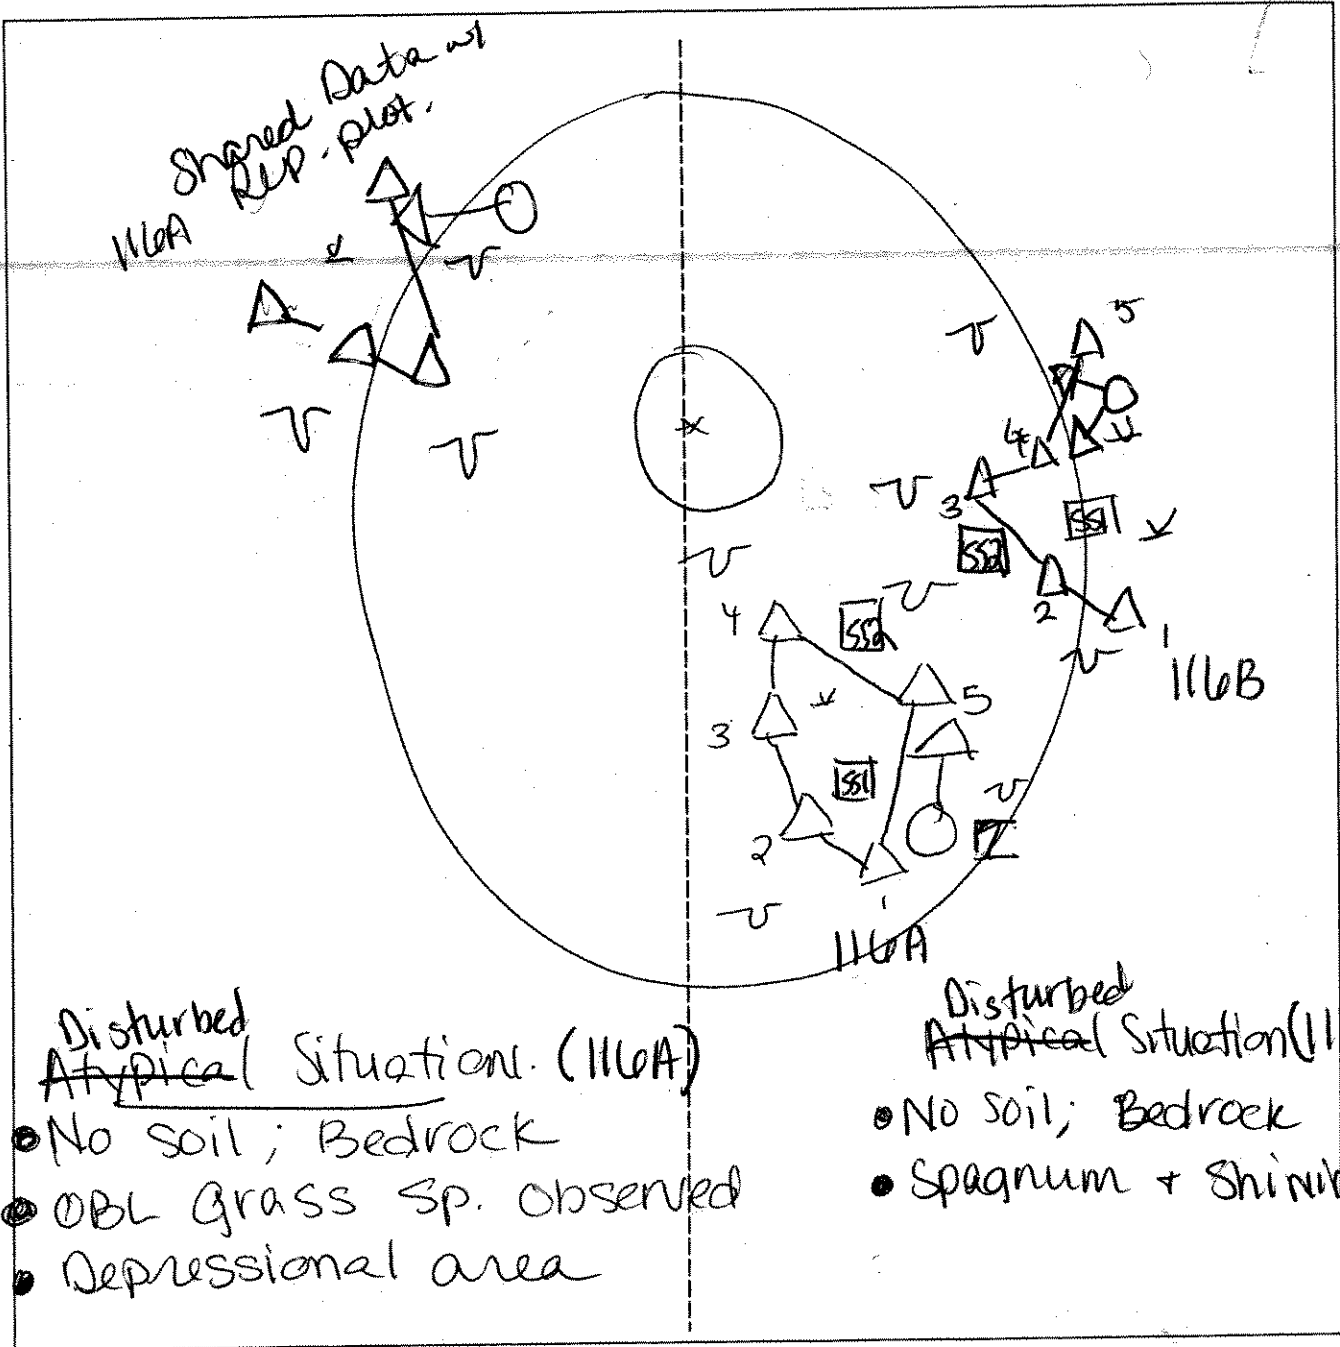 Shared Data w/
REP. plot.
116A
5
4
3
SS1
SS2
2
1
116B
4
SS2
5
3
SS1
2
1
116A
Disturbed
Atypical Situation. (116A)
• No soil; Bedrock
• OBL Grass Sp. Observed
• Depressional area
Disturbed
Atypical Situation (11
• No Soil; Bedrock
• Spagnum +